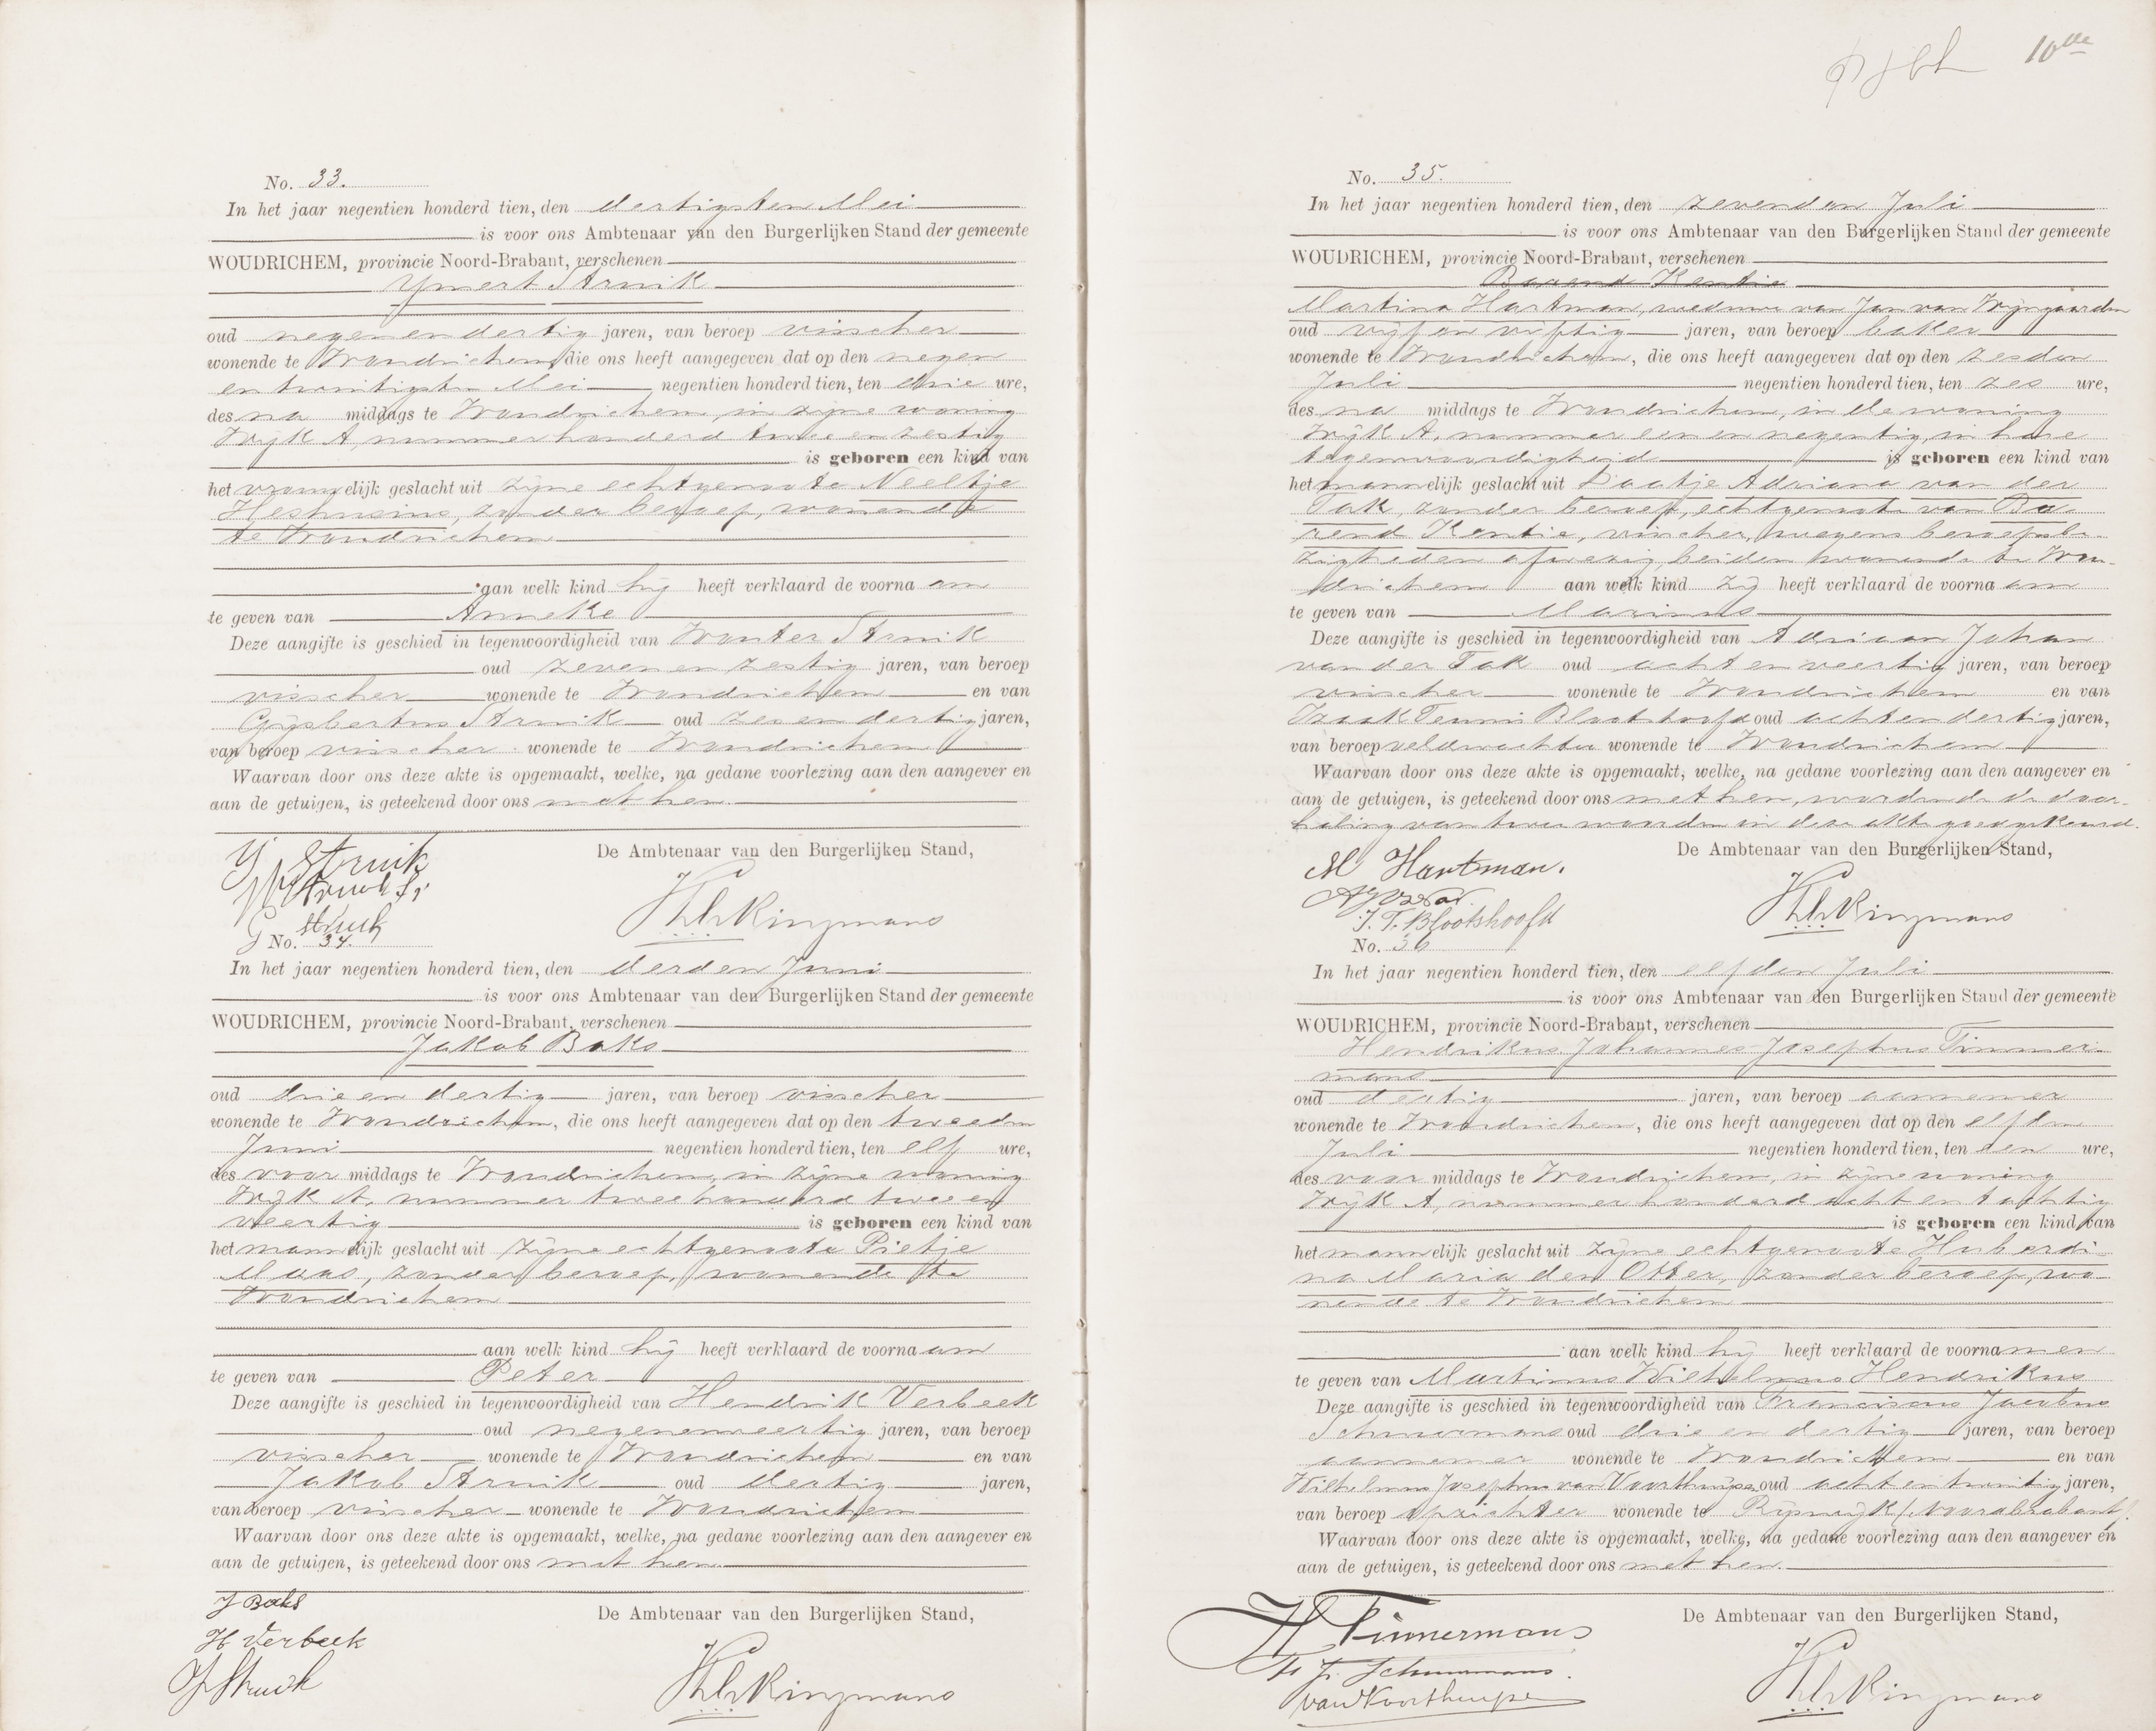 10de
No. 33.
In het jaar negentien honderd tien, den dertigsten Mei
is voor ons Ambtenaar van den Burgerlijken Stand der gemeente
WOUDRICHEM, provincie Noord-Brabant, verschenen
Ymert Struik
oud negenendertig jaren, van beroep visscher
wonende te Woudrichem, die ons heeft aangegeven dat op den negen
en twintigsten Mei negentien honderd tien, ten drie ure,
des na middags te Woudrichem, in zijne woning
Wijk A, nummer honderd twee en zestig
is geboren een kind van
het vrouwelijk geslacht uit zijne echtgenoote Neeltje
Heshusius, zonder beroep, wonende
te Woudrichem
aan welk kind hij heeft verklaard de voornaam
te geven van Anneke
Deze aangifte is geschied in tegenwoordigheid van Wouter Struik
oud zeven en zestig jaren, van beroep
visscher wonende te Woudrichem en van
Gijsbertus Struik oud zes en dertig jaren,
van beroep visscher wonende te Woudrichem
Waarvan door ons deze akte is opgemaakt, welke, na gedane voorlezing aan den aangever en
aan de getuigen, is geteekend door ons met hen.
De Ambtenaar van den Burgerlijken Stand,
Y Struik
W Struik Sr
G Struik
No. 34.
In het jaar negentien honderd tien, den derden Juni
is voor ons Ambtenaar van den Burgerlijken Stand der gemeente
WOUDRICHEM, provincie Noord-Brabant, verschenen
Jakob Baks
oud drie en dertig jaren, van beroep visscher
wonende te Woudrichem, die ons heeft aangegeven dat op den tweeden
Juni negentien honderd tien, ten elf ure,
des voor middags te Woudrichem, in zijne woning
Wijk A, nummer twee honderd twee en
veertig is geboren een kind van
het mannelijk geslacht uit zijne echtgenoote Pietje
Maas, zonder beroep, wonende te
Woudrichem
aan welk kind hij heeft verklaard de voornaam
te geven van Peter
Deze aangifte is geschied in tegenwoordigheid van Hendrik Verbeek
oud negenenveertig jaren, van beroep
visscher wonende te Woudrichem en van
Jakob Struik oud dertig jaren,
van beroep visscher wonende te Woudrichem
Waarvan door ons deze akte is opgemaakt, welke, na gedane voorlezing aan den aangever en
aan de getuigen, is geteekend door ons met hen.
De Ambtenaar van den Burgerlijken Stand,
J Baks
H Verbeek
J Struik
No. 35.
In het jaar negentien honderd tien, den zevenden Juli
is voor ons Ambtenaar van den Burgerlijken Stand der gemeente
WOUDRICHEM, provincie Noord-Brabant, verschenen
Barend Kentie
Martina Hartman, weduwe van Jan van Wijngaarden
oud vijf en vijftig jaren, van beroep baker
wonende te Woudrichem, die ons heeft aangegeven dat op den zesden
Juli negentien honderd tien, ten zes ure,
des na middags te Woudrichem, in de woning
Wijk A, nummer een en negentig, in hare
tegenwoordigheid is geboren een kind van
het mannelijk geslacht uit Daatje Adriana van der
Tak, zonder beroep, echtgenoote van Ba-
rend Kentie, visscher, wegens beroepsbe-
zigheden afwezig, beiden wonende te Wou-
drichem aan welk kind zij heeft verklaard de voornaam
te geven van Marinus
Deze aangifte is geschied in tegenwoordigheid van Adriaan Johan
van der Tak oud acht en veertig jaren, van beroep
visscher wonende te Woudrichem en van
Izaak Teunis Blootshoofd oud acht en dertig jaren,
van beroep veldwachter wonende te Woudrichem
Waarvan door ons deze akte is opgemaakt, welke, na gedane voorlezing aan den aangever en
aan de getuigen, is geteekend door ons met hen, wordende de door-
haling van twee woorden in deze akte goedgekeurd.
De Ambtenaar van den Burgerlijken Stand,
M Hartman.
I. T. Blootshoofd
No. 36
In het jaar negentien honderd tien, den elfden Juli
is voor ons Ambtenaar van den Burgerlijken Stand der gemeente
WOUDRICHEM, provincie Noord-Brabant, verschenen
Hendrikus Johannes Josephus Timmer-
mans
oud dertig jaren, van beroep aannemer
wonende te Woudrichem, die ons heeft aangegeven dat op den elfden
Juli negentien honderd tien, ten een ure,
des voor middags te Woudrichem, in zijne woning
Wijk A, nummer honderd acht en tachtig
is geboren een kind van
het mannelijk geslacht uit zijne echtgenoote Huberdi-
na Maria den Otter, zonder beroep, wo-
nende te Woudrichem
aan welk kind hij heeft verklaard de voornamen
te geven van Martinus Wilhelmus Hendrikus
Deze aangifte is geschied in tegenwoordigheid van Franciscus Jacobus
Schuurmans oud drie en dertig jaren, van beroep
aannemer wonende te Woudrichem en van
Wilhelmus Josephus van Voorthuijse oud acht en twintig jaren,
van beroep opzichter wonende te Rijswijk (Noordbrabant).
Waarvan door ons deze akte is opgemaakt, welke, na gedane voorlezing aan den aangever en
aan de getuigen, is geteekend door ons met hen.
De Ambtenaar van den Burgerlijken Stand,
H Timmermans
F. J. Schuurmans.
van Voorthuijse